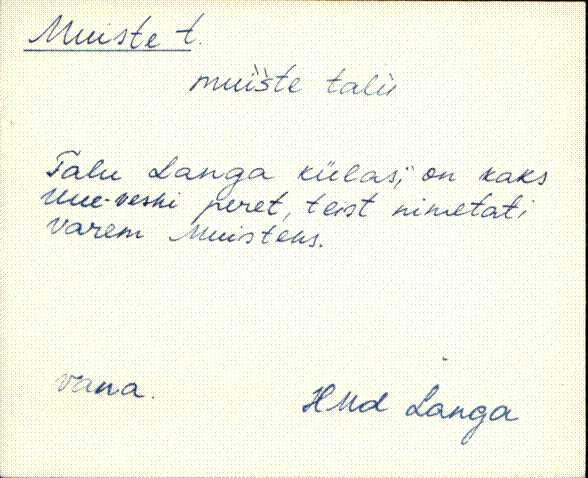 Muiste t.
muìšte talu
Talu Langa külas; on kaks
Uue-veski peret, teist nimetati
varem Muisteks.
vana.
HMd Langa